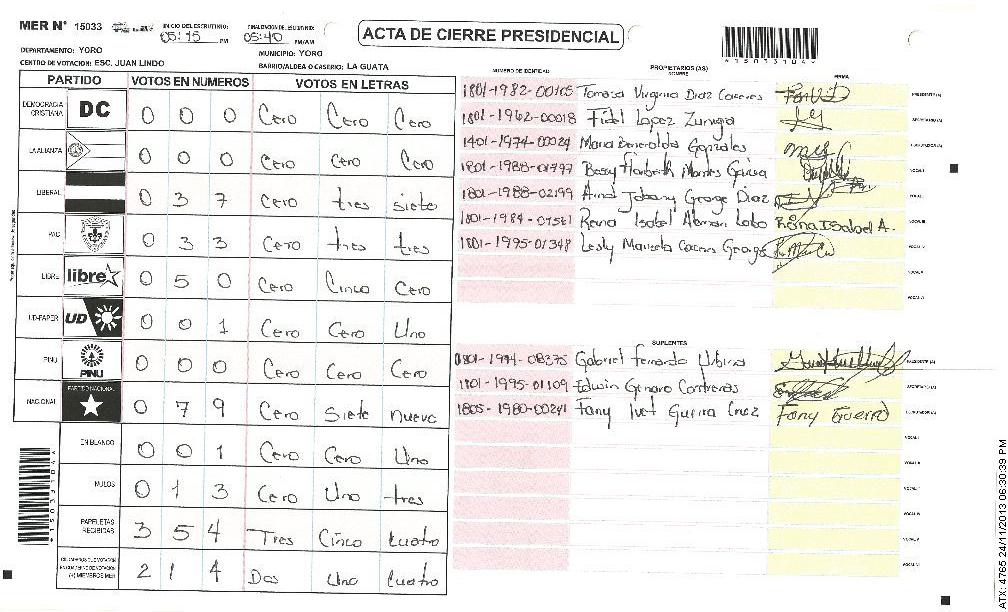 MER N° 15033
INICIO DEL ESCRUTINIO: 05:15 PM
FINALIZACION DEL ESCRUTINIO: 05:40 PM/AM
ACTA DE CIERRE PRESIDENCIAL
DEPARTAMENTO: YORO
MUNICIPIO: YORO
CENTRO DE VOTACION: ESC. JUAN LINDO
BARRIO/ALDEA O CASERIO: LA GUATA
PARTIDO VOTOS EN NUMEROS VOTOS EN LETRAS
DEMOCRACIA CRISTIANA DC 0 0 0 Cero Cero Cero
LA ALIANZA 0 0 0 Cero Cero Cero
LIBERAL 0 3 7 Cero tres siete
PAC 0 3 3 Cero tres tres
LIBRE libre 0 5 0 Cero Cinco Cero
UD-FAPER UD 0 0 1 Cero Cero Uno
PINU PINU 0 0 0 Cero Cero Cero
NACIONAL PARTIDO NACIONAL 0 7 9 Cero Siete nueve
EN BLANCO 0 0 1 Cero Cero Uno
NULOS 0 1 3 Cero Uno tres
PAPELETAS RECIBIDAS 3 5 4 Tres Cinco cuatro
(+) MIEMBROS MER 2 1 4 Dos Uno Cuatro
NUMERO DE IDENTIDAD PROPIETARIOS (AS) NOMBRE FIRMA
1801-1982-00105 Tomasa Virginia Diaz Caceres PRESIDENTE (A)
1801-1962-00018 Fidel Lopez Zuniga SECRETARIO (A)
1401-1974-00024 Maria Gonzales ESCRUTADOR (A)
1801-1988-01797 Bessy Montes VOCAL I
1801-1988-02199 George Diaz VOCAL II
1801-1984- Reina Isabel Aleman Lobo Reina Isabel A. VOCAL III
1801-1995-01348 Lesly Maricela Caceres George VOCAL IV
VOCAL V
VOCAL VI
SUPLENTES
1801-1994-08375 Gabriel Fernando Urbina PRESIDENTE (A)
1801-1995-01109 Edwin Genaro Contreras SECRETARIO (A)
1805-1980-00241 Fany Ivet Guerra Cruz Fany Guerra ESCRUTADOR (A)
VOCAL I
VOCAL II
VOCAL III
VOCAL IV
VOCAL V
VOCAL VI
ATX: 4765 24/11/2013 06:30:39 PM